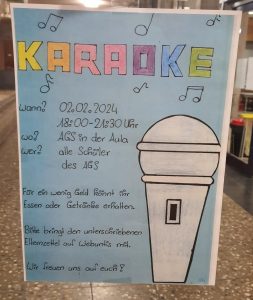 KARAOKE
wann? 02.02.2024
18:00-21:30 Uhr
wo? AGS in der Aula
wer? alle Schüler
des AGS
Für ein wenig Geld könnt ihr
Essen oder Getränke erhalten.
Bitte bringt den unterschriebenen
Elternzettel auf Webuntis mit.
Wir freuen uns auf euch!